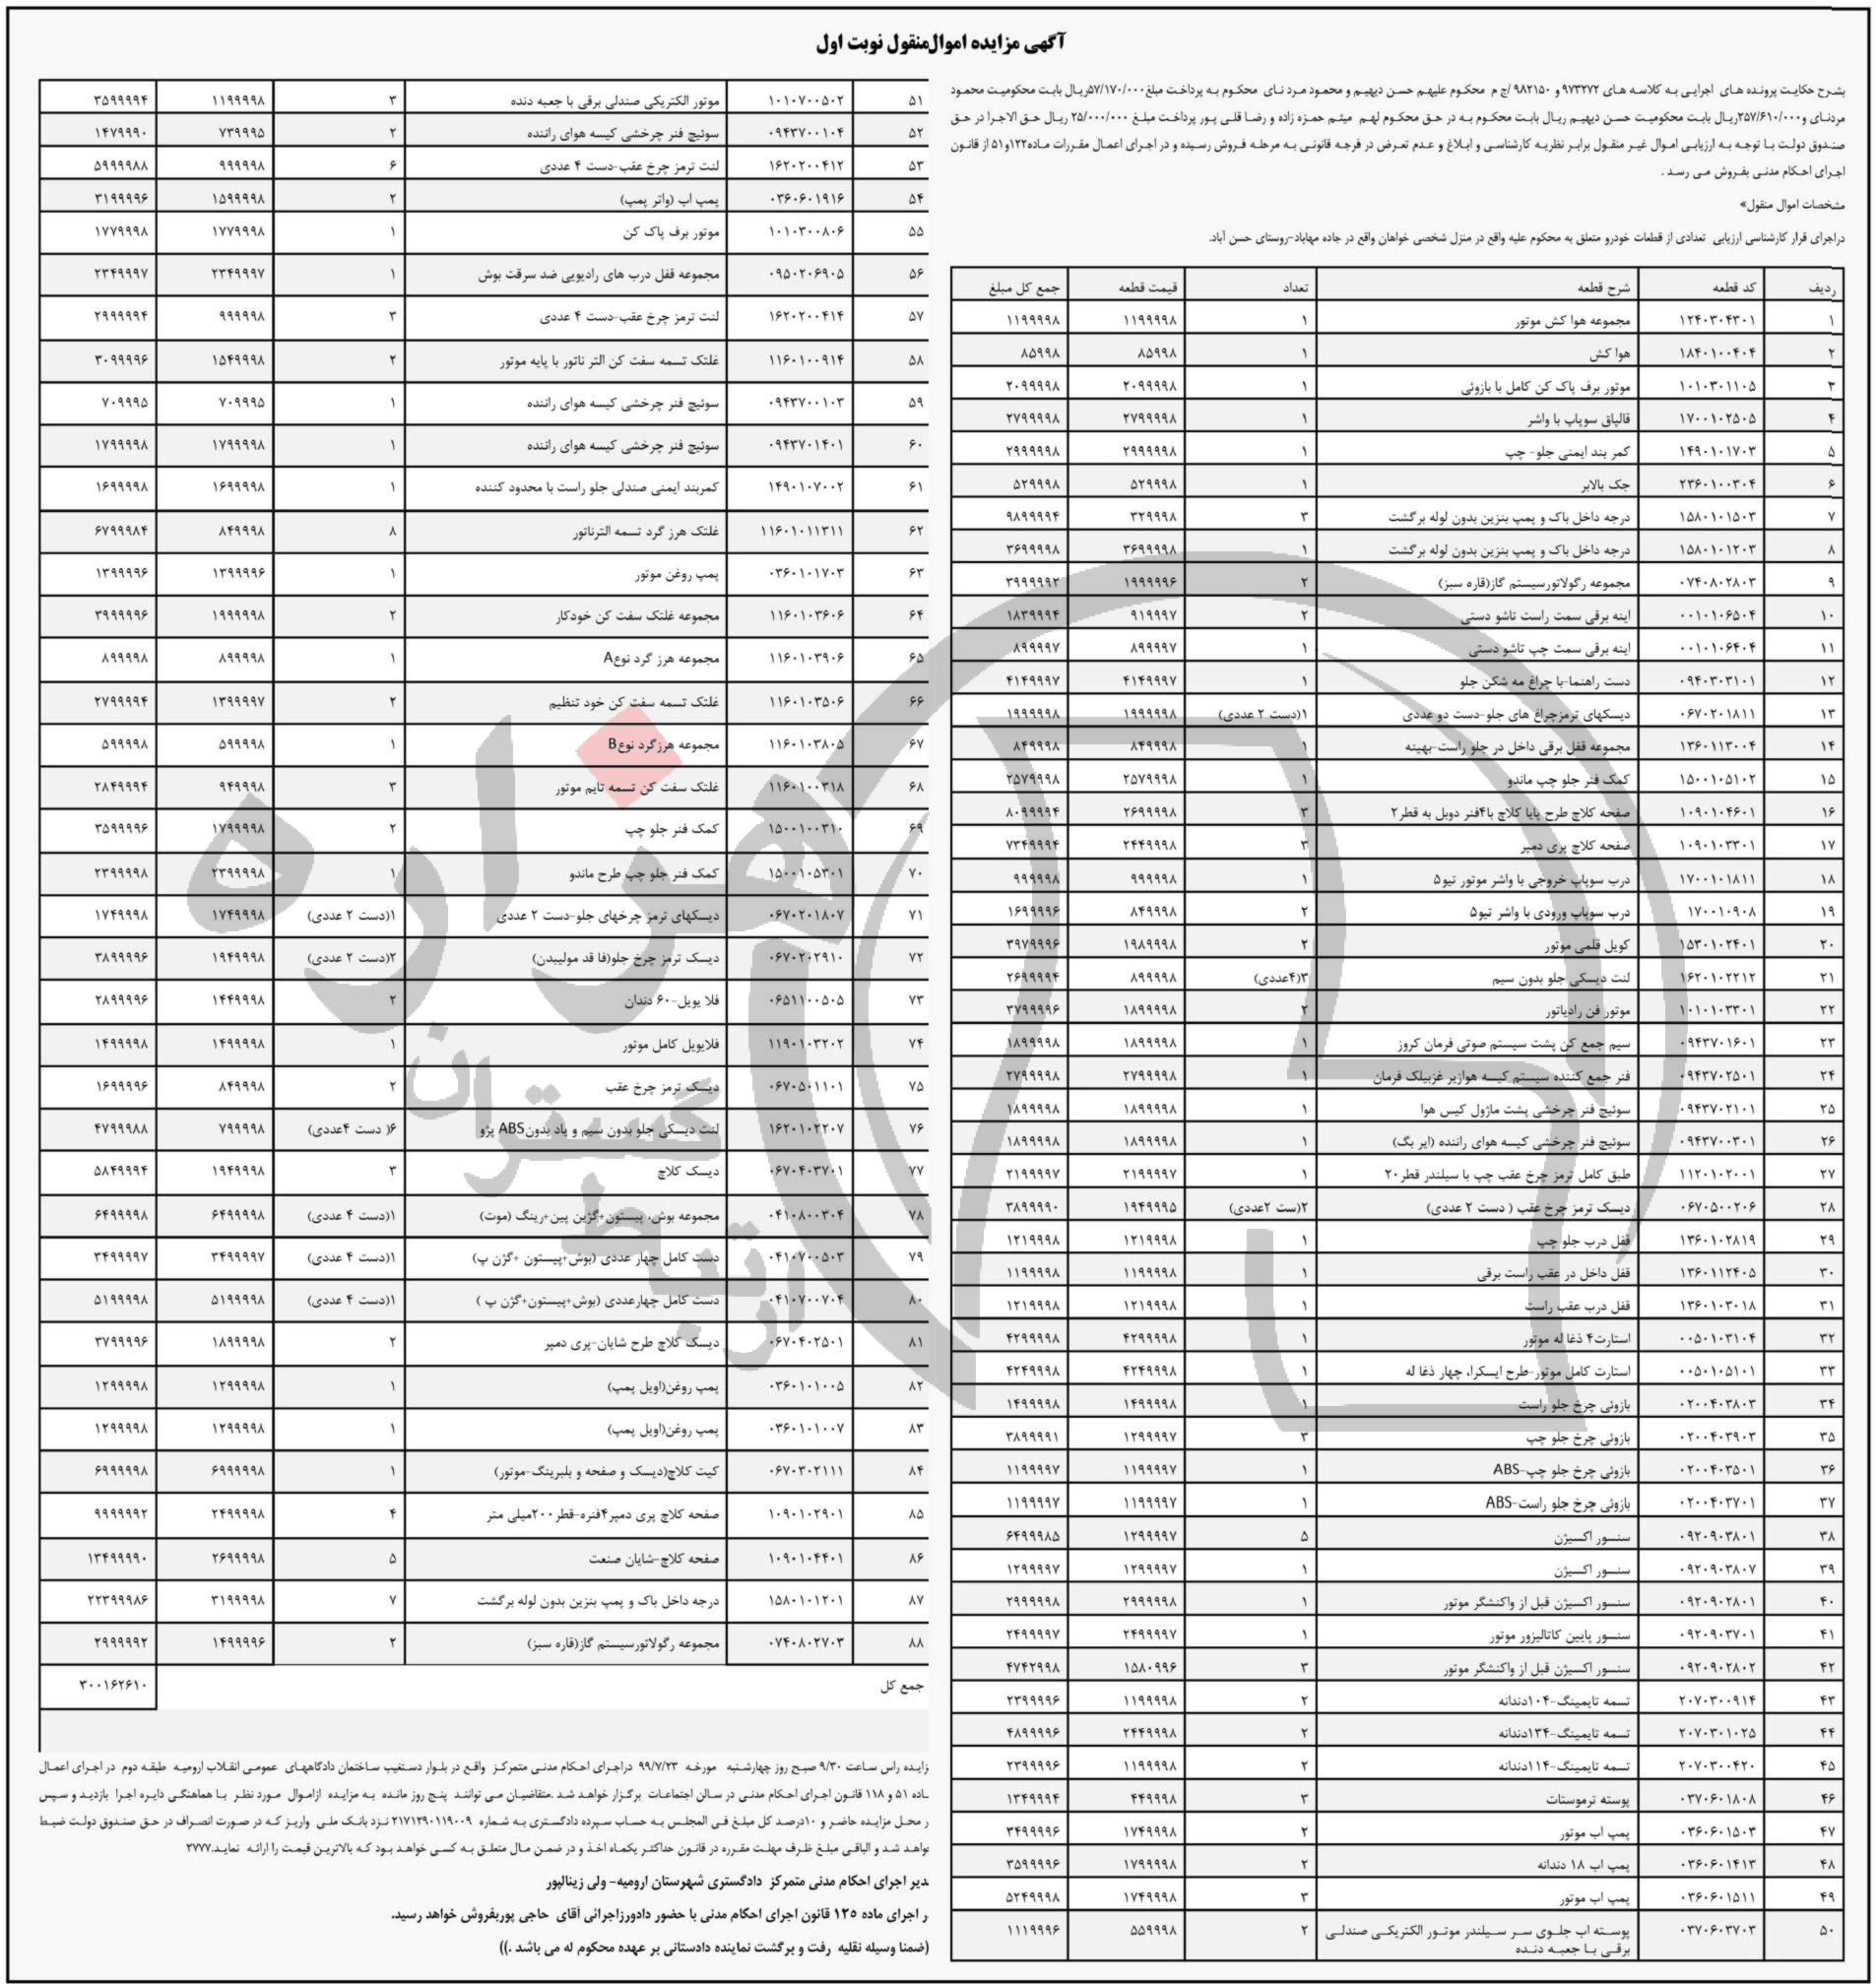 آگهی مزایده اموال‌منقول نوبت اول
بشرح حکایت پرونده های اجرایی به کلاسه های ۹۷۳۲۷۲ و ۹۸۲۱۵۰ /ج م محکوم علیهم حسن دیهیم و محمود مرد نای محکوم به پرداخت مبلغ ۵۷/۱۷۰/۰۰۰ریال بابت محکومیت محمود
مردنای و۲۵۷/۶۱۰/۰۰۰ریال بابت محکومیت حسن دیهیم ریال بابت محکوم به در حق محکوم لهم میثم حمزه زاده و رضا قلی پور پرداخت مبلغ ۲۵/۰۰۰/۰۰۰ ریال حق الاجرا در حق
صندوق دولت با توجه به ارزیابی اموال غیر منقول برابر نظریه کارشناسی و ابلاغ و عدم تعرض در فرجه قانونی به مرحله فروش رسیده و در اجرای اعمال مقررات ماده۱۲۲و۵۱ از قانون
اجرای احکام مدنی بفروش می رسد .
مشخصات اموال منقول»
دراجرای قرار کارشناسی ارزیابی تعدادی از قطعات خودرو متعلق به محکوم علیه واقع در منزل شخصی خواهان واقع در جاده مهاباد-روستای حسن آباد.
ردیف کد قطعه شرح قطعه تعداد قیمت قطعه جمع کل مبلغ
۱ ۱۲۴۰۳۰۴۳۰۱ مجموعه هوا کش موتور ۱ ۱۱۹۹۹۹۸ ۱۱۹۹۹۹۸
۲ ۱۸۴۰۱۰۰۴۰۴ هوا کش ۱ ۸۵۹۹۸ ۸۵۹۹۸
۳ ۱۰۱۰۳۰۱۱۰۵ موتور برف پاک کن کامل با بازوئی ۱ ۲۰۹۹۹۹۸ ۲۰۹۹۹۹۸
۴ ۱۷۰۰۱۰۲۵۰۵ قالپاق سوپاپ با واشر ۱ ۲۷۹۹۹۹۸ ۲۷۹۹۹۹۸
۵ ۱۴۹۰۱۰۱۷۰۳ کمر بند ایمنی جلو- چپ ۱ ۲۹۹۹۹۹۸ ۲۹۹۹۹۹۸
۶ ۲۳۶۰۱۰۰۳۰۴ جک بالابر ۱ ۵۲۹۹۹۸ ۵۲۹۹۹۸
۷ ۱۵۸۰۱۰۱۵۰۳ درجه داخل باک و پمپ بنزین بدون لوله برگشت ۳ ۳۲۹۹۹۸ ۹۸۹۹۹۹۴
۸ ۱۵۸۰۱۰۱۲۰۳ درجه داخل باک و پمپ بنزین بدون لوله برگشت ۱ ۳۶۹۹۹۹۸ ۳۶۹۹۹۹۸
۹ ۰۷۴۰۸۰۲۸۰۳ مجموعه رگولاتورسیستم گاز(قاره سبز) ۲ ۱۹۹۹۹۹۶ ۳۹۹۹۹۹۲
۱۰ ۰۰۱۰۱۰۶۵۰۴ اینه برقی سمت راست تاشو دستی ۲ ۹۱۹۹۹۷ ۱۸۳۹۹۹۴
۱۱ ۰۰۱۰۱۰۶۴۰۴ اینه برقی سمت چپ تاشو دستی ۱ ۸۹۹۹۹۷ ۸۹۹۹۹۷
۱۲ ۰۹۴۰۳۰۳۱۰۱ دست راهنما-با چراغ مه شکن جلو ۱ ۴۱۴۹۹۹۷ ۴۱۴۹۹۹۷
۱۳ ۰۶۷۰۲۰۱۸۱۱ دیسکهای ترمزچراغ های جلو-دست دو عددی ۱(دست ۲ عددی) ۱۹۹۹۹۹۸ ۱۹۹۹۹۹۸
۱۴ ۱۳۶۰۱۱۳۰۰۴ مجموعه قفل برقی داخل در جلو راست-بهینه ۱ ۸۴۹۹۹۸ ۸۴۹۹۹۸
۱۵ ۱۵۰۰۱۰۵۱۰۲ کمک فنر جلو چپ ماندو ۱ ۲۵۷۹۹۹۸ ۲۵۷۹۹۹۸
۱۶ ۱۰۹۰۱۰۴۶۰۱ صفحه کلاچ طرح پایا کلاچ با۴فنر دوبل به قطر۲ ۳ ۲۶۹۹۹۹۸ ۸۰۹۹۹۹۴
۱۷ ۱۰۹۰۱۰۳۳۰۱ صفحه کلاچ پری دمپر ۳ ۲۴۴۹۹۹۸ ۷۳۴۹۹۹۴
۱۸ ۱۷۰۰۱۰۱۸۱۱ درب سوپاپ خروجی با واشر موتور تیو۵ ۱ ۹۹۹۹۹۸ ۹۹۹۹۹۸
۱۹ ۱۷۰۰۱۰۹۰۸ درب سوپاپ ورودی با واشر تیو۵ ۲ ۸۴۹۹۹۸ ۱۶۹۹۹۹۶
۲۰ ۱۵۳۰۱۰۲۴۰۱ کویل قلمی موتور ۲ ۱۹۸۹۹۹۸ ۳۹۷۹۹۹۶
۲۱ ۱۶۲۰۱۰۲۲۱۲ لنت دیسکی جلو بدون سیم ۳(۴عددی) ۸۹۹۹۹۸ ۲۶۹۹۹۹۴
۲۲ ۱۰۱۰۱۰۳۳۰۱ موتور فن رادیاتور ۲ ۱۸۹۹۹۹۸ ۳۷۹۹۹۹۶
۲۳ ۰۹۴۳۷۰۱۶۰۱ سیم جمع کن پشت سیستم صوتی فرمان کروز ۱ ۱۸۹۹۹۹۸ ۱۸۹۹۹۹۸
۲۴ ۰۹۴۳۷۰۲۵۰۱ فنر جمع کننده سیستم کیسه هوازیر غزبیلک فرمان ۱ ۲۷۹۹۹۹۸ ۲۷۹۹۹۹۸
۲۵ ۰۹۴۳۷۰۲۱۰۱ سوئیچ فنر چرخشی پشت ماژول کیس هوا ۱ ۱۸۹۹۹۹۸ ۱۸۹۹۹۹۸
۲۶ ۰۹۴۳۷۰۰۳۰۱ سوئیچ فنر چرخشی کیسه هوای راننده (ایر بگ) ۱ ۱۸۹۹۹۹۸ ۱۸۹۹۹۹۸
۲۷ ۱۱۲۰۱۰۲۰۰۱ طبق کامل ترمز چرخ عقب چپ با سیلندر قطر۲۰ ۱ ۲۱۹۹۹۹۷ ۲۱۹۹۹۹۷
۲۸ ۰۶۷۰۵۰۰۲۰۶ دیسک ترمز چرخ عقب ( دست ۲ عددی) ۲(ست ۲عددی) ۱۹۴۹۹۹۵ ۳۸۹۹۹۹۰
۲۹ ۱۳۶۰۱۰۲۸۱۹ قفل درب جلو چپ ۱ ۱۲۱۹۹۹۸ ۱۲۱۹۹۹۸
۳۰ ۱۳۶۰۱۱۲۴۰۵ قفل داخل در عقب راست برقی ۱ ۱۱۹۹۹۹۸ ۱۱۹۹۹۹۸
۳۱ ۱۳۶۰۱۰۳۰۱۸ قفل درب عقب راست ۱ ۱۲۱۹۹۹۸ ۱۲۱۹۹۹۸
۳۲ ۰۰۵۰۱۰۳۱۰۴ استارت۴ ذغا له موتور ۱ ۴۲۹۹۹۹۸ ۴۲۹۹۹۹۸
۳۳ ۰۰۵۰۱۰۵۱۰۱ استارت کامل موتور-طرح ایسکرا، چهار ذغا له ۱ ۴۲۴۹۹۹۸ ۴۲۴۹۹۹۸
۳۴ ۰۲۰۰۴۰۳۸۰۳ بازوئی چرخ جلو راست ۱ ۱۴۹۹۹۹۸ ۱۴۹۹۹۹۸
۳۵ ۰۲۰۰۴۰۳۹۰۳ بازوئی چرخ جلو چپ ۳ ۱۲۹۹۹۹۷ ۳۸۹۹۹۹۱
۳۶ ۰۲۰۰۴۰۳۵۰۱ بازوئی چرخ جلو چپ-ABS ۱ ۱۱۹۹۹۹۷ ۱۱۹۹۹۹۷
۳۷ ۰۲۰۰۴۰۳۷۰۱ بازوئی چرخ جلو راست-ABS ۱ ۱۱۹۹۹۹۷ ۱۱۹۹۹۹۷
۳۸ ۰۹۲۰۹۰۳۸۰۱ سنسور اکسیژن ۵ ۱۲۹۹۹۹۷ ۶۴۹۹۹۸۵
۳۹ ۰۹۲۰۹۰۳۸۰۷ سنسور اکسیژن ۱ ۱۲۹۹۹۹۷ ۱۲۹۹۹۹۷
۴۰ ۰۹۲۰۹۰۲۸۰۱ سنسور اکسیژن قبل از واکنشگر موتور ۱ ۲۹۹۹۹۹۸ ۲۹۹۹۹۹۸
۴۱ ۰۹۲۰۹۰۳۷۰۱ سنسور پایین کاتالیزور موتور ۱ ۲۴۹۹۹۹۷ ۲۴۹۹۹۹۷
۴۲ ۰۹۲۰۹۰۲۸۰۲ سنسور اکسیژن قبل از واکنشگر موتور ۳ ۱۵۸۰۹۹۶ ۴۷۴۲۹۹۸
۴۳ ۲۰۷۰۳۰۰۹۱۴ تسمه تایمینگ-۱۰۴دندانه ۲ ۱۱۹۹۹۹۸ ۲۳۹۹۹۹۶
۴۴ ۲۰۷۰۳۰۱۰۲۵ تسمه تایمینگ-۱۳۴دندانه ۲ ۲۴۴۹۹۹۸ ۴۸۹۹۹۹۶
۴۵ ۲۰۷۰۳۰۰۴۲۰ تسمه تایمینگ-۱۱۴دندانه ۲ ۱۱۹۹۹۹۸ ۲۳۹۹۹۹۶
۴۶ ۰۳۷۰۶۰۱۸۰۸ پوسته ترموستات ۳ ۴۴۹۹۹۸ ۱۳۴۹۹۹۴
۴۷ ۰۳۶۰۶۰۱۵۰۳ پمپ اب موتور ۲ ۱۷۴۹۹۹۸ ۳۴۹۹۹۹۶
۴۸ ۰۳۶۰۶۰۱۴۱۳ پمپ اب ۱۸ دندانه ۲ ۱۷۹۹۹۹۸ ۳۵۹۹۹۹۶
۴۹ ۰۳۶۰۶۰۱۵۱۱ پمپ اب موتور ۳ ۱۷۴۹۹۹۸ ۵۲۴۹۹۹۸
۵۰ ۰۳۷۰۶۰۳۷۰۳ پوسته اب جلوی سر سیلندر موتور الکتریکی صندلی ۲ ۵۵۹۹۹۸ ۱۱۱۹۹۹۶
برقی با جعبه دنده
۵۱ ۱۰۱۰۷۰۰۵۰۲ موتور الکتریکی صندلی برقی با جعبه دنده ۳ ۱۱۹۹۹۹۸ ۳۵۹۹۹۹۴
۵۲ ۰۹۴۳۷۰۰۱۰۴ سوئیچ فنر چرخشی کیسه هوای راننده ۲ ۷۳۹۹۹۵ ۱۴۷۹۹۹۰
۵۳ ۱۶۲۰۲۰۰۴۱۲ لنت ترمز چرخ عقب-دست ۴ عددی ۶ ۹۹۹۹۹۸ ۵۹۹۹۹۸۸
۵۴ ۰۳۶۰۶۰۱۹۱۶ پمپ اب (واتر پمپ) ۲ ۱۵۹۹۹۹۸ ۳۱۹۹۹۹۶
۵۵ ۱۰۱۰۳۰۰۸۰۶ موتور برف پاک کن ۱ ۱۷۷۹۹۹۸ ۱۷۷۹۹۹۸
۵۶ ۰۹۵۰۲۰۶۹۰۵ مجموعه قفل درب های رادیویی ضد سرقت بوش ۱ ۲۳۴۹۹۹۷ ۲۳۴۹۹۹۷
۵۷ ۱۶۲۰۲۰۰۴۱۴ لنت ترمز چرخ عقب-دست ۴ عددی ۳ ۹۹۹۹۹۸ ۲۹۹۹۹۹۴
۵۸ ۱۱۶۰۱۰۰۹۱۴ غلتک تسمه سفت کن التر ناتور با پایه موتور ۲ ۱۵۴۹۹۹۸ ۳۰۹۹۹۹۶
۵۹ ۰۹۴۳۷۰۰۱۰۳ سوئیچ فنر چرخشی کیسه هوای راننده ۱ ۷۰۹۹۹۵ ۷۰۹۹۹۵
۶۰ ۰۹۴۳۷۰۱۴۰۱ سوئیچ فنر چرخشی کیسه هوای راننده ۱ ۱۷۹۹۹۹۸ ۱۷۹۹۹۹۸
۶۱ ۱۴۹۰۱۰۷۰۰۲ کمربند ایمنی صندلی جلو راست با محدود کننده ۱ ۱۶۹۹۹۹۸ ۱۶۹۹۹۹۸
۶۲ ۱۱۶۰۱۰۱۱۳۱۱ غلتک هرز گرد تسمه الترناتور ۸ ۸۴۹۹۹۸ ۶۷۹۹۹۸۴
۶۳ ۰۳۶۰۱۰۱۷۰۳ پمپ روغن موتور ۱ ۱۳۹۹۹۹۶ ۱۳۹۹۹۹۶
۶۴ ۱۱۶۰۱۰۳۶۰۶ مجموعه غلتک سفت کن خودکار ۲ ۱۹۹۹۹۹۸ ۳۹۹۹۹۹۶
۶۵ ۱۱۶۰۱۰۳۹۰۶ مجموعه هرز گرد نوعA ۱ ۸۹۹۹۹۸ ۸۹۹۹۹۸
۶۶ ۱۱۶۰۱۰۳۵۰۶ غلتک تسمه سفت کن خود تنظیم ۲ ۱۳۹۹۹۹۷ ۲۷۹۹۹۹۴
۶۷ ۱۱۶۰۱۰۳۸۰۵ مجموعه هرزگرد نوعB ۱ ۵۹۹۹۹۸ ۵۹۹۹۹۸
۶۸ ۱۱۶۰۱۰۰۳۱۸ غلتک سفت کن تسمه تایم موتور ۳ ۹۴۹۹۹۸ ۲۸۴۹۹۹۴
۶۹ ۱۵۰۰۱۰۰۳۱۰ کمک فنر جلو چپ ۲ ۱۷۹۹۹۹۸ ۳۵۹۹۹۹۶
۷۰ ۱۵۰۰۱۰۵۳۰۱ کمک فنر جلو چپ طرح ماندو ۱ ۲۳۹۹۹۹۸ ۲۳۹۹۹۹۸
۷۱ ۰۶۷۰۲۰۱۸۰۷ دیسکهای ترمز چرخهای جلو-دست ۲ عددی ۱(دست ۲ عددی) ۱۷۴۹۹۹۸ ۱۷۴۹۹۹۸
۷۲ ۰۶۷۰۲۰۲۹۱۰ دیسک ترمز چرخ جلو(فا قد مولیبدن) ۲(دست ۲ عددی) ۱۹۴۹۹۹۸ ۳۸۹۹۹۹۶
۷۳ ۰۶۵۱۱۰۰۵۰۵ فلا یویل-۶۰ دندان ۲ ۱۴۴۹۹۹۸ ۲۸۹۹۹۹۶
۷۴ ۱۱۹۰۱۰۳۲۰۲ فلایویل کامل موتور ۱ ۱۴۹۹۹۹۸ ۱۴۹۹۹۹۸
۷۵ ۰۶۷۰۵۰۱۱۰۱ دیسک ترمز چرخ عقب ۲ ۸۴۹۹۹۸ ۱۶۹۹۹۹۶
۷۶ ۱۶۲۰۱۰۲۲۰۷ لنت دیسکی جلو بدون سیم و پاد بدونABS پژو ۶( دست ۴عددی) ۷۹۹۹۹۸ ۴۷۹۹۹۸۸
۷۷ ۰۶۷۰۴۰۳۷۰۱ دیسک کلاچ ۳ ۱۹۴۹۹۹۸ ۵۸۴۹۹۹۴
۷۸ ۰۴۱۰۸۰۰۳۰۴ مجموعه بوش، پیستون+گژین پین+رینگ (موت) ۱(دست ۴ عددی) ۶۴۹۹۹۹۸ ۶۴۹۹۹۹۸
۷۹ ۰۴۱۰۷۰۰۵۰۳ دست کامل چهار عددی (بوش+پیستون +گژن پ) ۱(دست ۴ عددی) ۳۴۹۹۹۹۷ ۳۴۹۹۹۹۷
۸۰ ۰۴۱۰۷۰۰۷۰۴ دست کامل چهارعددی (بوش+پیستون+گژن پ ) ۱(دست ۴ عددی) ۵۱۹۹۹۹۸ ۵۱۹۹۹۹۸
۸۱ ۰۶۷۰۴۰۲۵۰۱ دیسک کلاچ طرح شایان-پری دمپر ۲ ۱۸۹۹۹۹۸ ۳۷۹۹۹۹۶
۸۲ ۰۳۶۰۱۰۱۰۰۵ پمپ روغن(اویل پمپ) ۱ ۱۲۹۹۹۹۸ ۱۲۹۹۹۹۸
۸۳ ۰۳۶۰۱۰۱۰۰۷ پمپ روغن(اویل پمپ) ۱ ۱۲۹۹۹۹۸ ۱۲۹۹۹۹۸
۸۴ ۰۶۷۰۳۰۲۱۱۱ کیت کلاچ(دیسک و صفحه و بلبرینگ-موتور) ۱ ۶۹۹۹۹۹۸ ۶۹۹۹۹۹۸
۸۵ ۱۰۹۰۱۰۲۹۰۱ صفحه کلاچ پری دمپر۴فنره-قطر۲۰۰میلی متر ۴ ۲۴۹۹۹۹۸ ۹۹۹۹۹۹۲
۸۶ ۱۰۹۰۱۰۴۴۰۱ صفحه کلاچ-شایان صنعت ۵ ۲۶۹۹۹۹۸ ۱۳۴۹۹۹۹۰
۸۷ ۱۵۸۰۱۰۱۲۰۱ درجه داخل باک و پمپ بنزین بدون لوله برگشت ۷ ۳۱۹۹۹۹۸ ۲۲۳۹۹۹۸۶
۸۸ ۰۷۴۰۸۰۲۷۰۳ مجموعه رگولاتورسیستم گاز(قاره سبز) ۲ ۱۴۹۹۹۹۶ ۲۹۹۹۹۹۲
جمع کل ۳۰۰۱۶۲۶۱۰
زایده راس ساعت ۹/۳۰ صبح روز چهارشنبه مورخه ۹۹/۷/۲۳ دراجرای احکام مدنی متمرکز واقع در بلوار دستغیب ساختمان دادگاههای عمومی انقلاب ارومیه طبقه دوم در اجرای اعمال
ـاده ۵۱ و ۱۱۸ قانون اجرای احکام مدنی در سالن اجتماعات برگزار خواهد شد .متقاضیان می توانند پنج روز مانده به مزایده ازاموال مورد نظر با هماهنگی دایره اجرا بازدید و سپس
ر محل مزایده حاضر و ۱۰درصد کل مبلغ فی المجلس به حساب سپرده دادگستری به شماره ۲۱۷۱۲۹۰۱۱۹۰۰۹ نزد بانک ملی واریز که در صورت انصراف در حق صندوق دولت ضبط
واهد شد و الباقی مبلغ ظرف مهلت مقرره در قانون حداکثر یکماه اخذ و در ضمن مال متعلق به کسی خواهد بود که بالاترین قیمت را ارائه نماید.۳۷۷۷
دیر اجرای احکام مدنی متمرکز دادگستری شهرستان ارومیه- ولی زینالپور
ر اجرای ماده ۱۲۵ قانون اجرای احکام مدنی با حضور دادورزاجرائی آقای حاجی پوربفروش خواهد رسید.
(ضمنا وسیله نقلیه رفت و برگشت نماینده دادستانی بر عهده محکوم له می باشد .))
هزاره
گستران
ارتباط